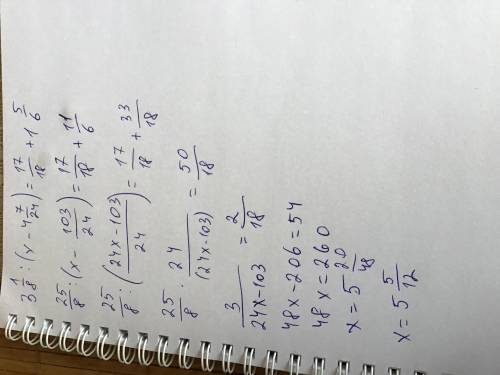 3 1/8 : (x - 4 7/24) = 17/18 + 1 5/6
25/8 : (x - 103/24) = 17/18 + 11/6
25/8 : ((24x - 103)/24) = 17/18 + 33/18
25/8 · 24/(24x - 103) = 50/18
3/(24x - 103) = 2/18
48x - 206 = 54
48x = 260
x = 5 20/48
x = 5 5/12